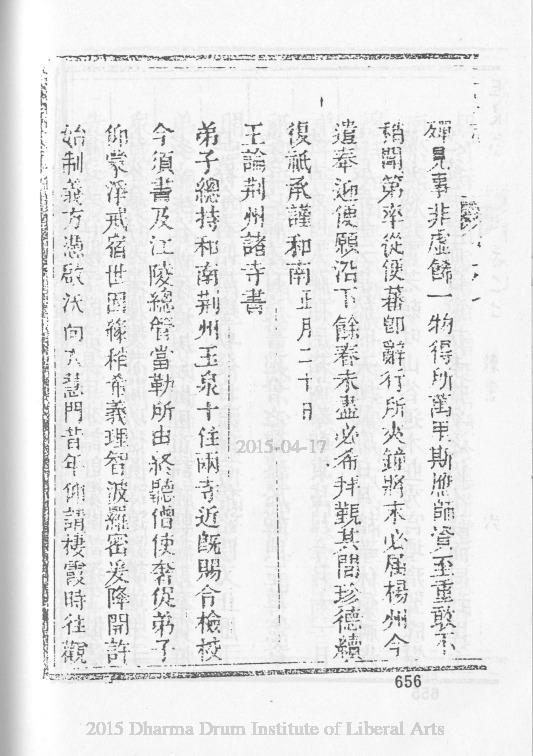 殫見事非虛餙一物得所萬甲斯應師資至重敢不
稍開第率從使蕃卽辭行所火鐘將來必屆楊州今
遣奉迎便願沿下餘春未盡必希拜覲其間珍德續
復祇承謹和南正月二十日
王論荆州諸寺書
弟子總持和南荆州玉泉十住兩寺近旣賜令檢校
今須書及江陵總管當勒所由終聽僧使奢促弟子
仰蒙淨戒宿世因緣稚希義理智波羅密爰降開許
始制義方憑啟沃向大慧門昔年仰請棲霞時往觀
2015-04-17
656
2015 Dharma Drum Institute of Liberal Arts